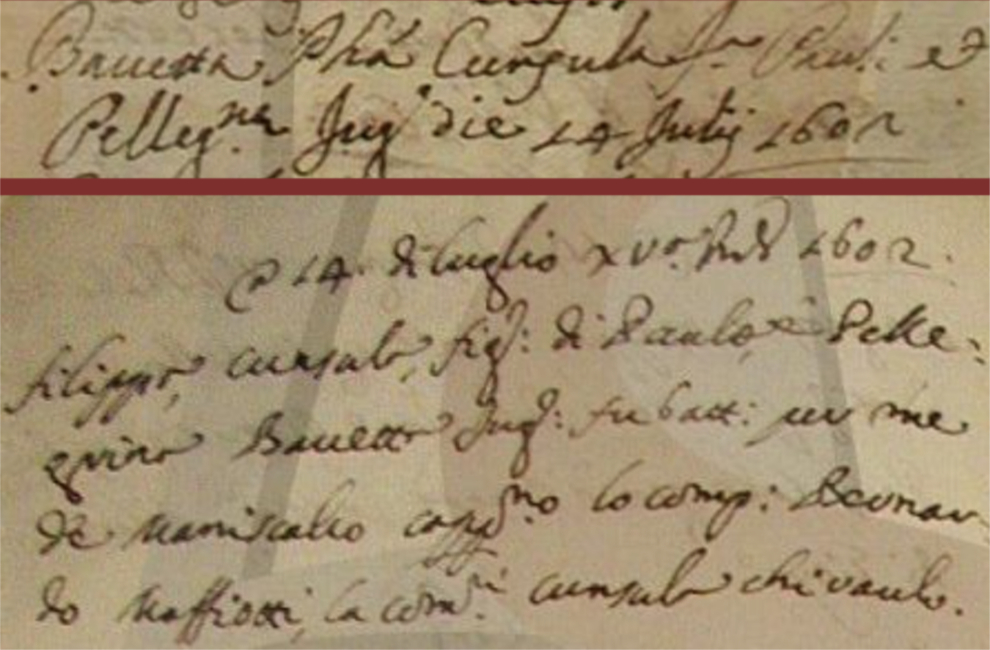 Bauetta Pha Cunsula f. Pauli et
Pelleg.na Jug. die 14 Julij 1602
14. di luglio xv. Ind. 1602.
filippo, cunsulo, figl: di Paulo, e Pelle:
grina Bauetta Jug: fu batt: me
de Maniscalco capp.no lo comp: Beonar
do Maffiotti, la com. cunsula chi vaulo.